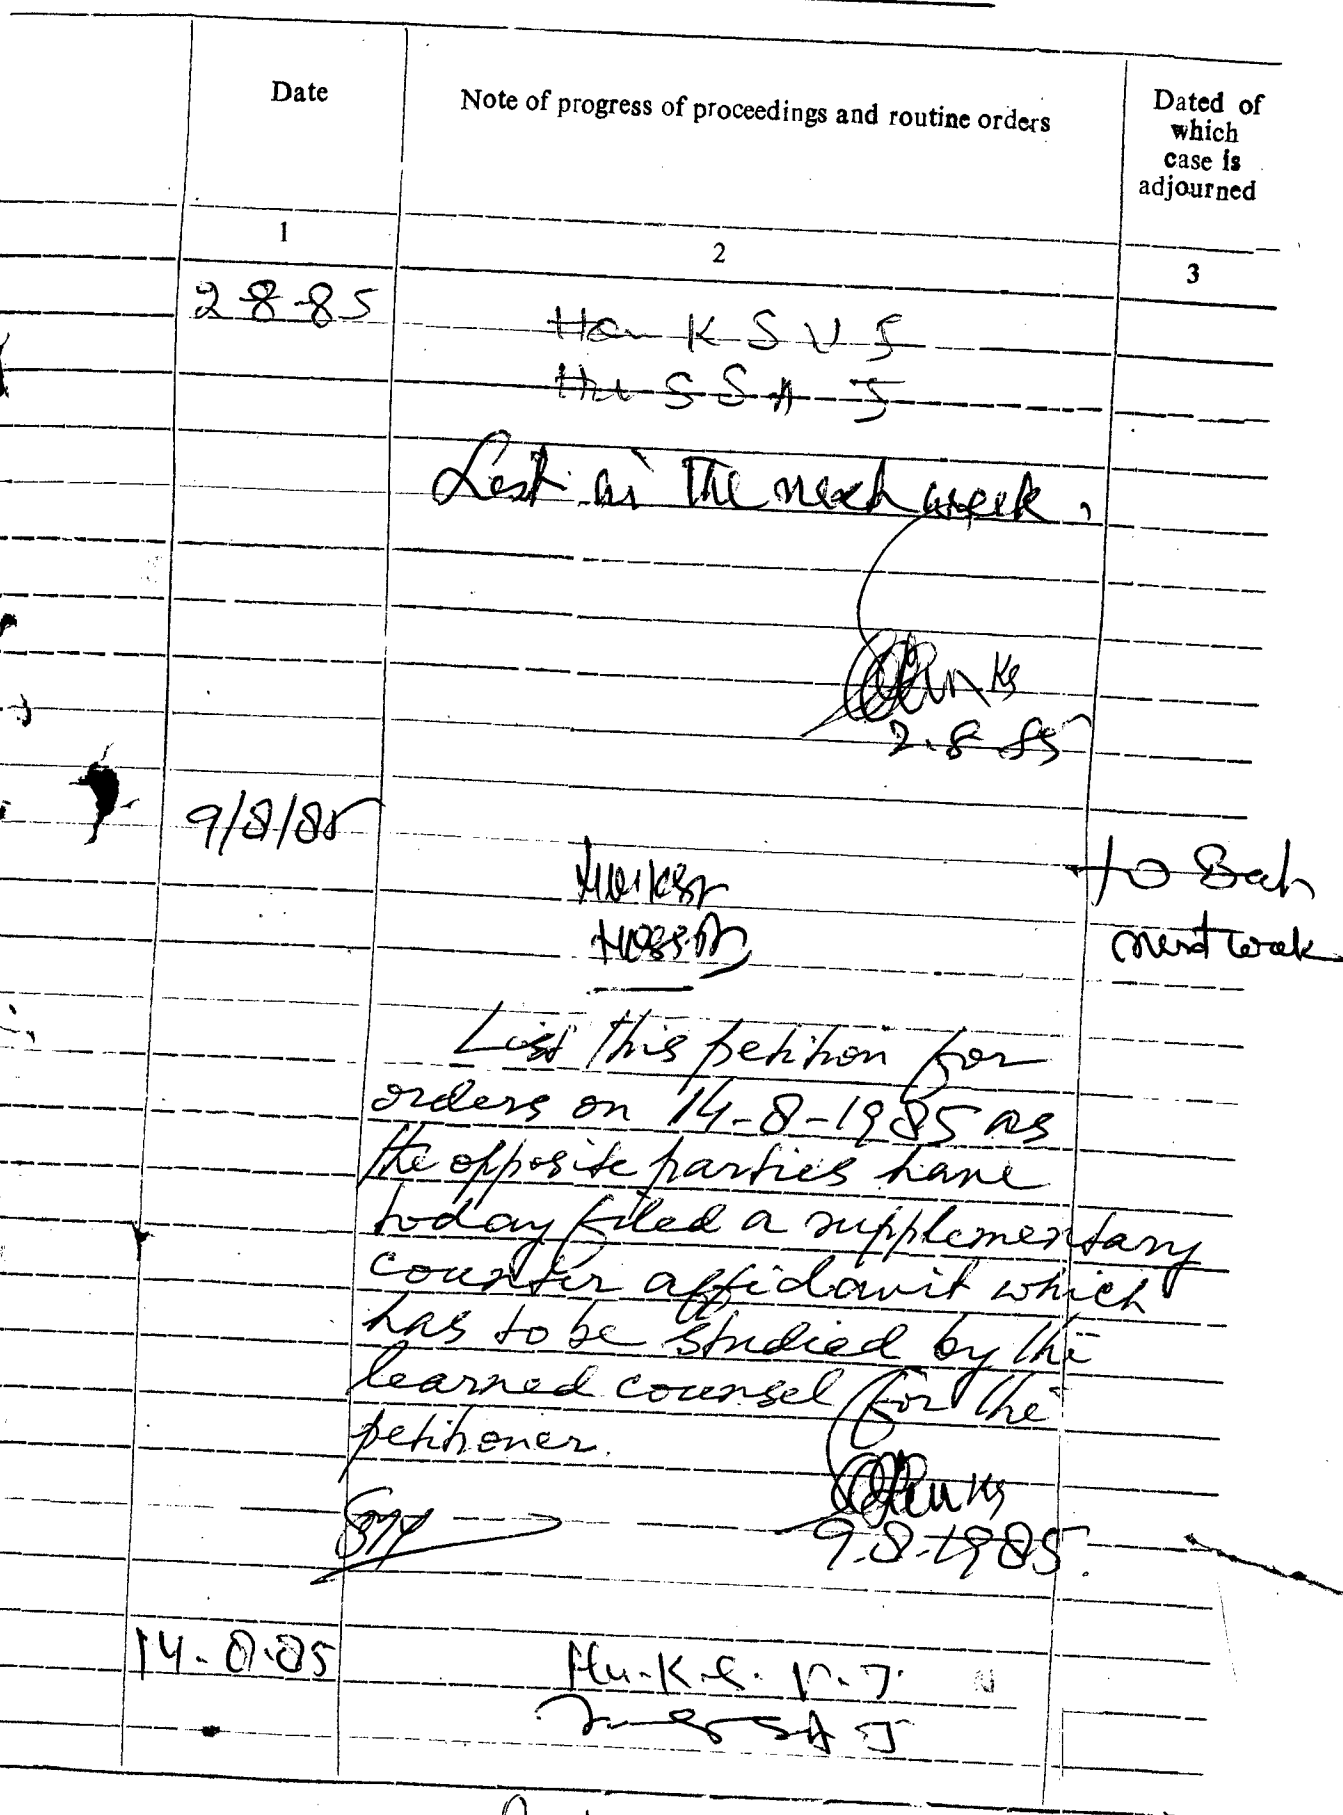 Date
Note of progress of proceedings and routine orders
Dated of
which
case is
adjourned
1
2
3
2-8-85
Hon K S V J
Hon S S A J
List in the next week.
2.8.85
9/8/85
to Bch
next week
List this petition for
orders on 14-8-1985 as
the opposite parties have
today filed a supplementary
counter affidavit which
has to be studied by the
learned counsel for the
petitioner.
9.8.1985.
14.8.85
Hu.K.S. V.J.
S S A J